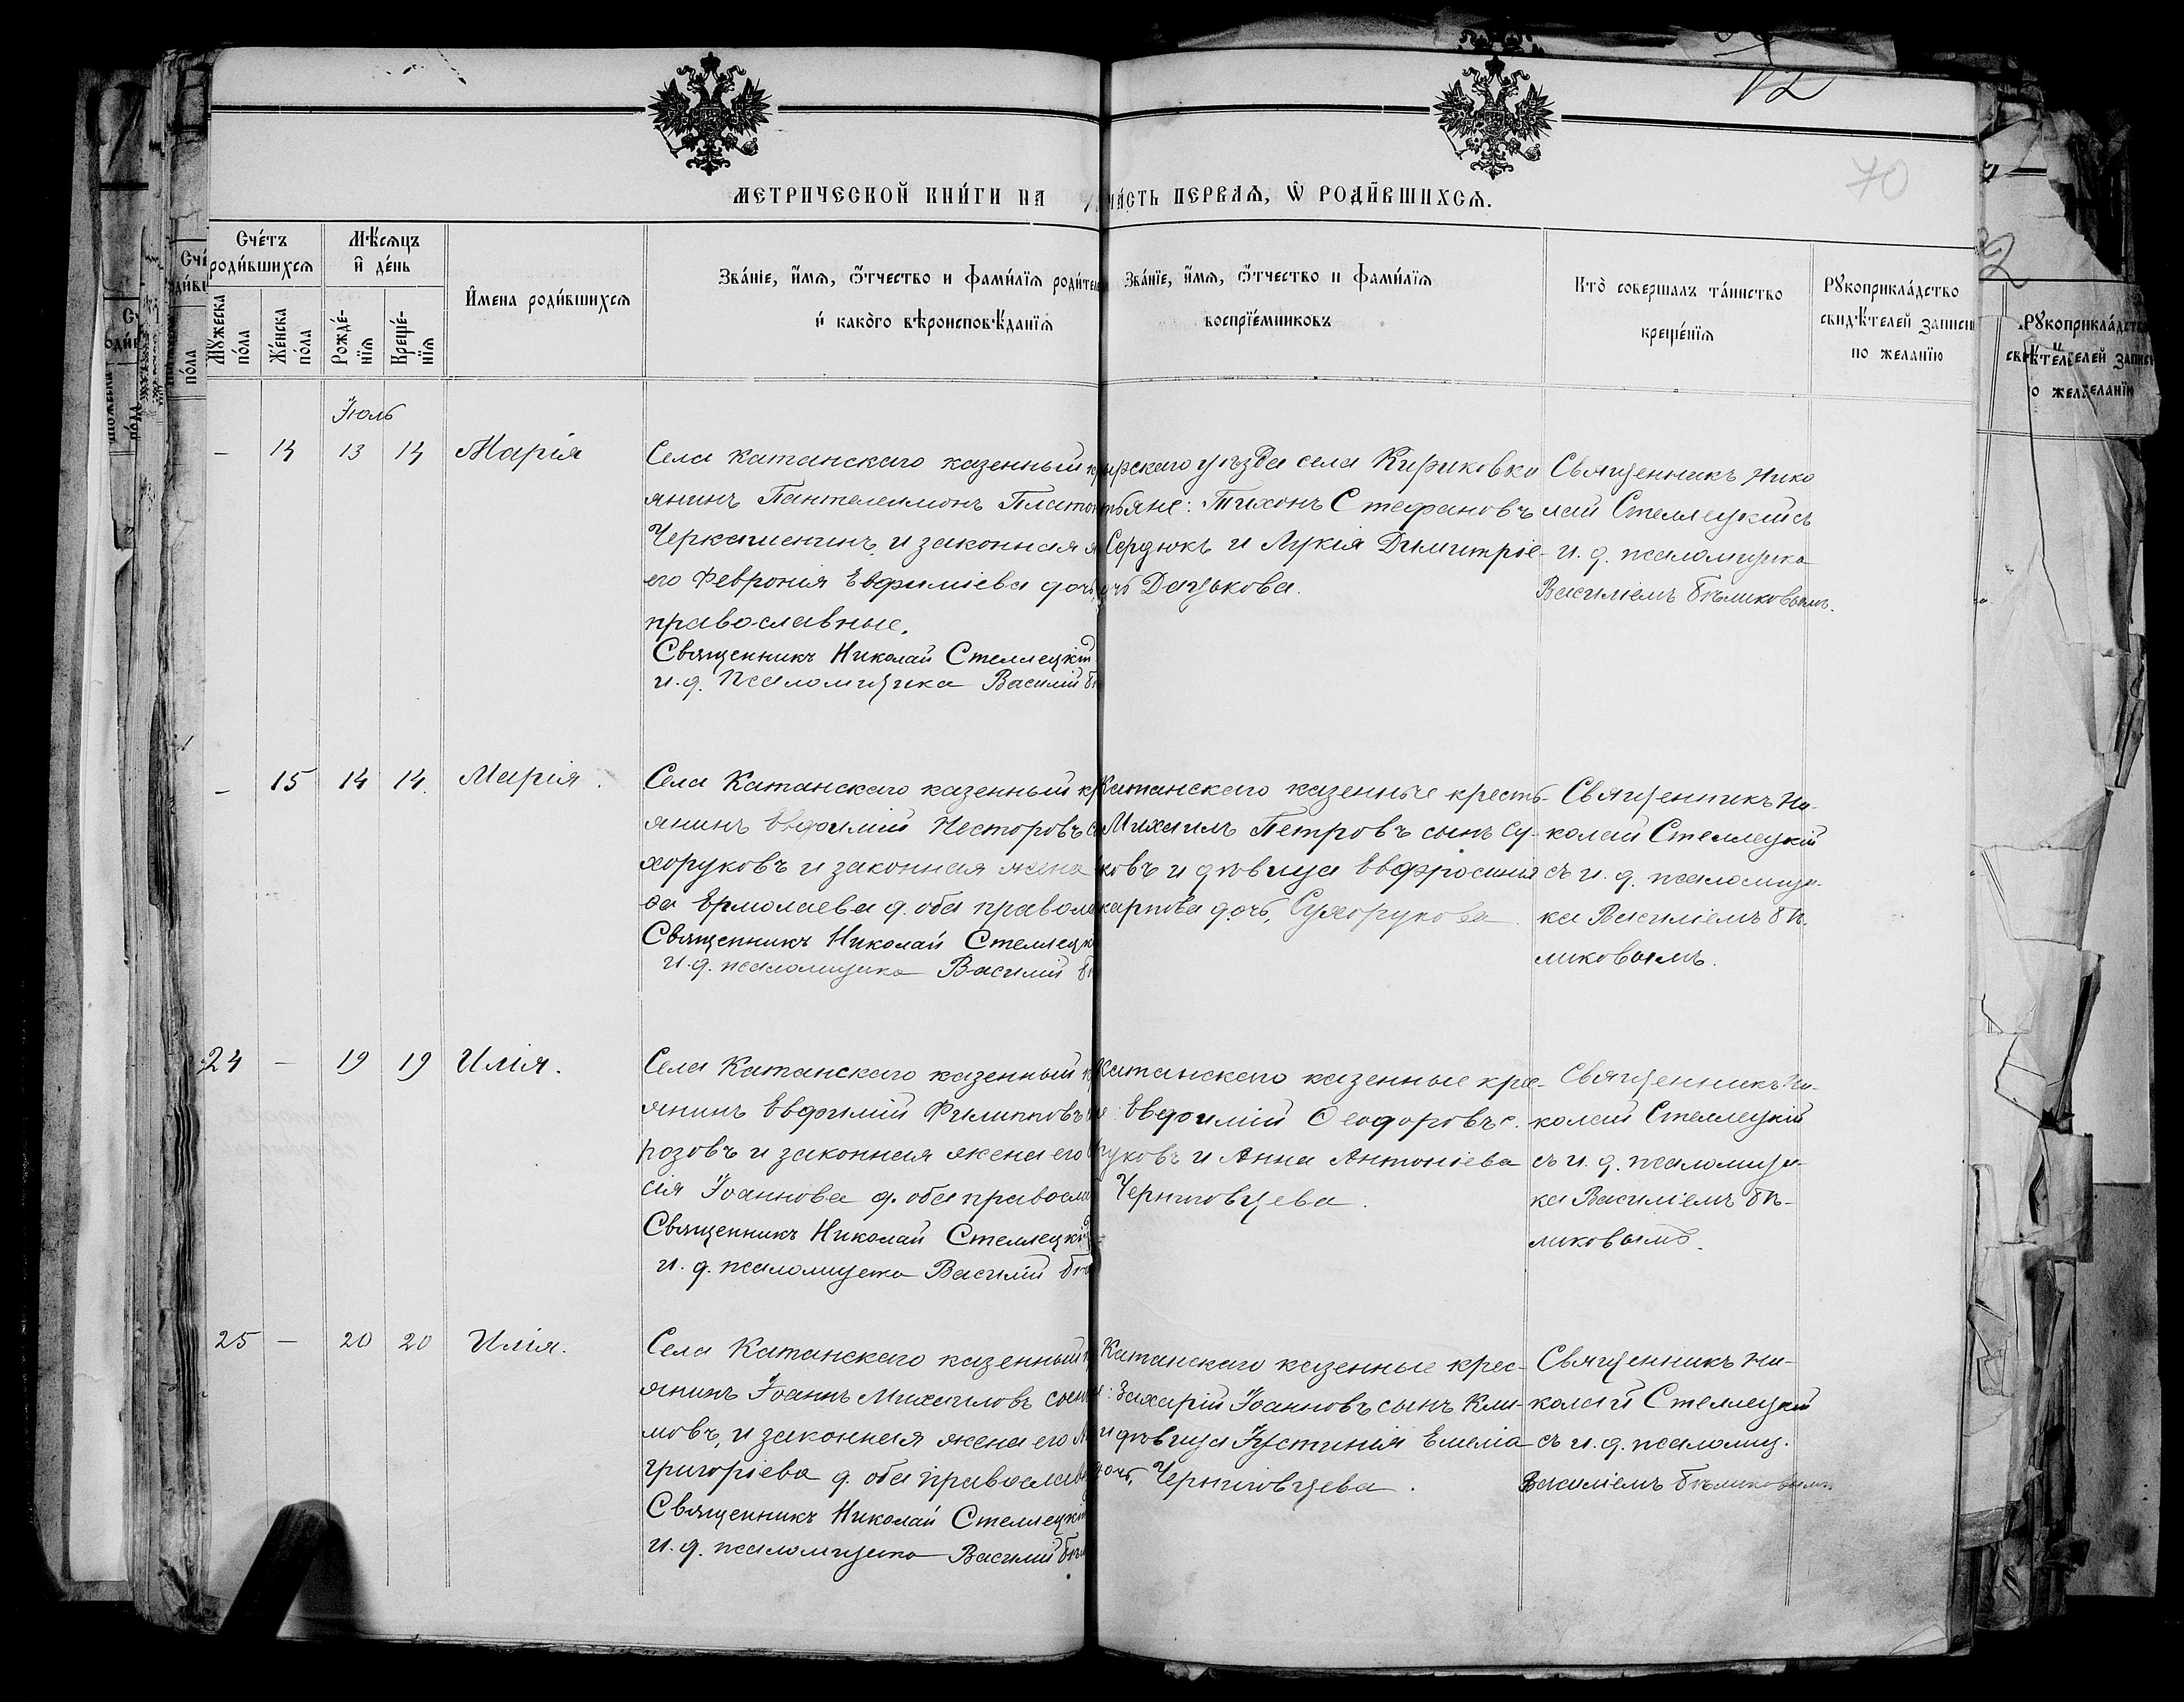 12
70
МЕТРИЧЕСКОЙ КНИ́ГИ НА
ЧА́СТЬ ПЕРВАѦ, Ѡ҆ РОДИ́ВШИХСѦ.
Сче́тъ роди́вшихсѧ
Мѣ́сѧцъ и҆ де́нь
Мꙋ́жеска по́ла
Же́нска по́ла
Рожде́-нїѧ
Креще́-нїѧ
И҆мена роди́вшихсѧ
Зва́нїе, и҆́мѧ, ѻ҆́тчество и фами́лїѧ родите
и҆ како́гѡ вѣроисповѣ́данїѧ
Зва́нїе, и҆́мѧ, ѻ҆́тчество и фами́лїѧ
воспрїе́мниковъ
Кто̀ соверша́лъ та́инство
креще́нїѧ
Рꙋкоприкла́дство
свидѣ́телей записи
по жела́нїю
Іюль
– 14 13 14 Марія
Села Катанскаго казенный кр
янинъ Пантелеимонъ Платон
Черкашенинъ и законная ж
его Феврония Евфиміева дочь,
православные.
Священникъ Николай Стеллецкій
и. д. Псаломщика Василій Бѣ
ирскаго уѣзда села Кириковки
тьяне: Тихонъ Стефановъ
Сердюкъ и Лукія Димитріе-
дочь Дацькова.
Священникъ Нико
лай Стеллецкій съ
и. д. псаломщика
Василіемъ Бѣликовымъ.
– 15 14 14. Марія.
Села Катанскаго казенный кр
янинъ Евфимій Несторовъ с
хоруковъ и законная жена
да Ермолаева д. оба правосла
Священникъ Николай Стеллецк
и. д. псаломщика Василій Б
Катанскаго казенные кресть-
Михаилъ Петровъ сынъ Су-
ковъ и дѣвица Евфросинія
карпова дочь, Сухорукова.
Священникъ Ни-
колай Стеллецкій
съ и. д. псаломщи-
ка Василіемъ Бѣ-
ликовымъ.
24 – 19 19 Илія.
Села Катанскаго казенный к
янинъ Евфимій Филипповъ
розовъ и законная жена его
сія Іоаннова д. оба правосла
Священникъ Николай Стеллецкі
и. д. псаломщика Василій Бѣ
Катанскаго казенные кре-
Евфимій Ѳеодоровъ с.
руковъ и Анна Антоніева
Черниговцева.
Священникъ Ни-
колай Стеллецкій
съ и. д. псаломщи-
ка Василіемъ Бѣ-
ликовымъ.
25 – 20 20 Илія.
Села Катанскаго казенный
янинъ Іоаннъ Михаиловъ сын
мовъ, и законная жена его
григоріева д. оба православ
Священникъ Николай Стеллецкі
и. д. псаломщика Василій Бѣл
Катанскаго казенные крес-
Захарій Іоанновъ сынъ Кли-
и дѣвица Іустинія Емелiа
дочь, Черниговцева.
Священникъ Ни-
колай Стеллецкій
съ и. д. псаломщ.
Василіемъ Бѣликовымъ.